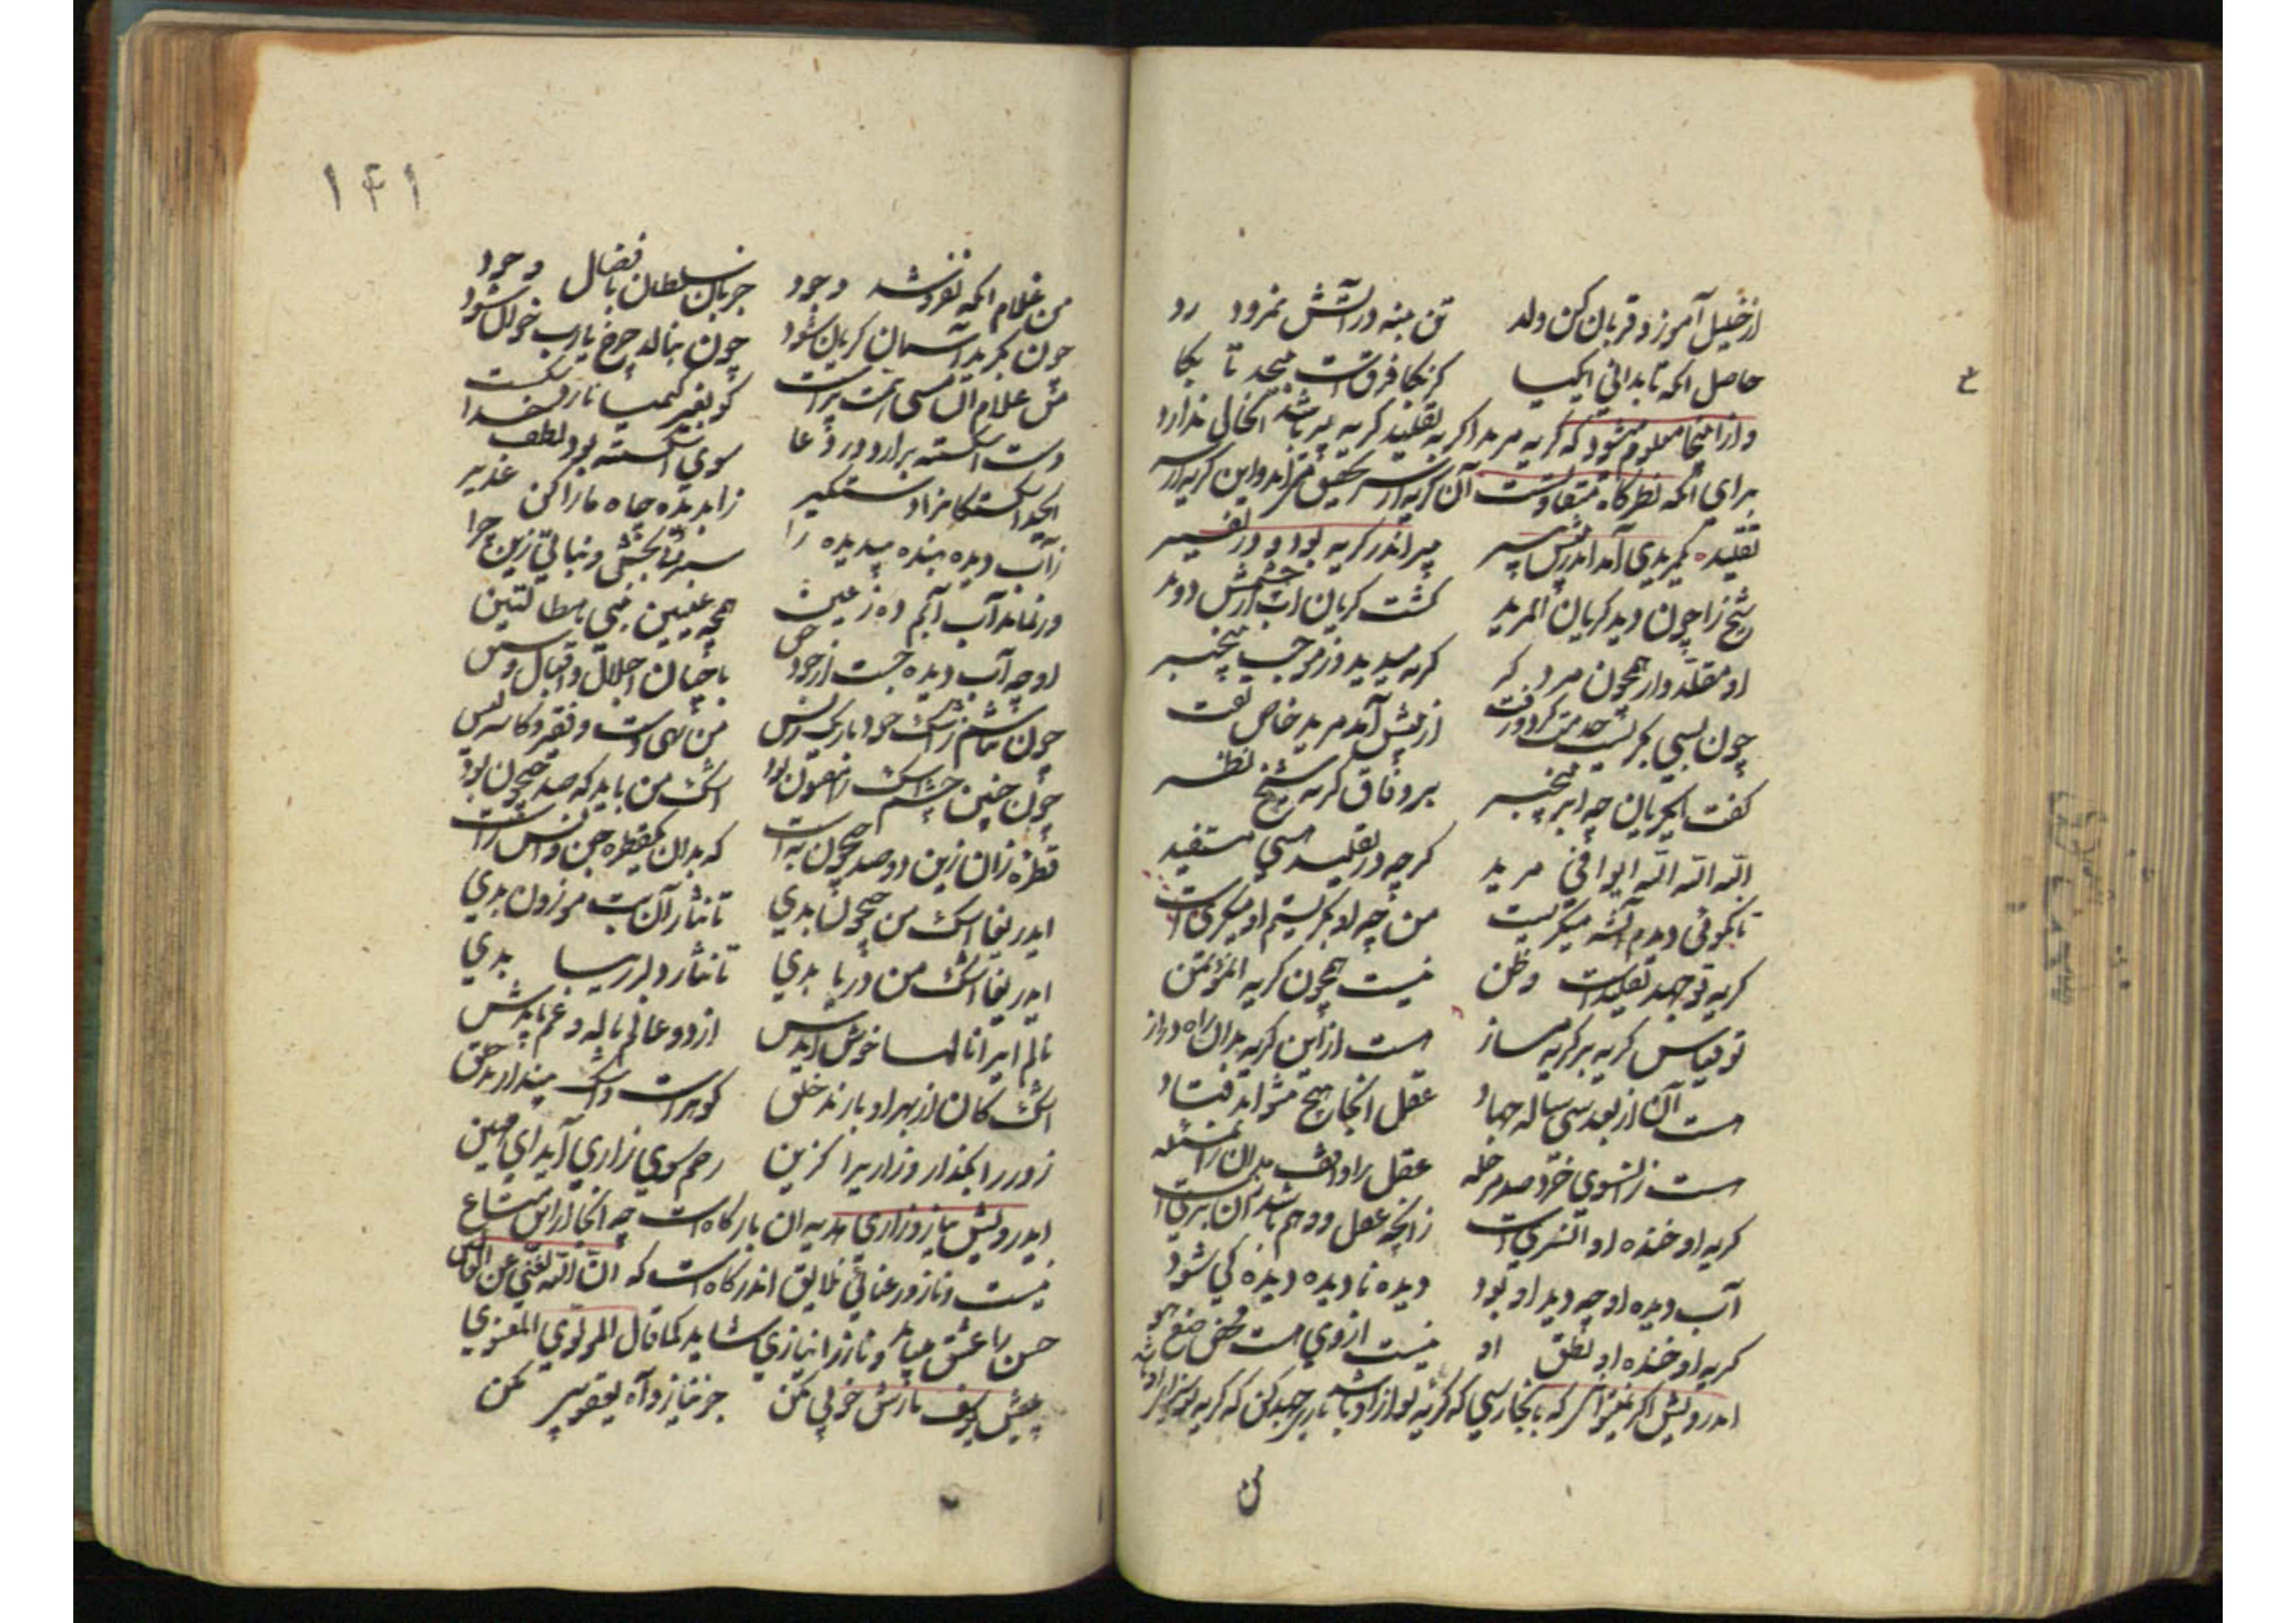 از خلیل آموز و قربان کن ولد تن بنه در آتش نمرود رد
حاصل انکه تا بدانی ایکیا کز کجا فرقست بیحد تا بکا
و از اینجا معلوم میشود که کریه مرید اکر به تقلید کریه پیر باشد انحالی ندارد
برای انکه نظرکاه متفاوتست آن کریه از سر تحقیق مر آمد و این کریه از سر
تقلید یکمریدی آمد اندر پیش پیر پیر اندر کریه بود و در نفیر
شیخ را چون دید کریان المرید کشت کریان آب از چشمش دوید
او مقلدوار همچون مرد کر کریه میدید و ز موجب بیخبر
چون بسی بکریست خدمت کرد و رفت از پیش آمد مرید خاص تفت
کفت ایکریان چه ابر بیخبر بر وفاق کریه شیخ نظر
الله الله الله ایوافی مرید کرچه در تقلید هستی مستفید
تا نکوئی دیدم آنشه میکریست من چه او بکریستم او میکریست
کریه تو جهد تقلیدست وظن نیست همچون کریه المؤتمن
تو قیاس کریه بر کریه مساز هست از این کریه بدان راه دراز
هست آن از بعد سی ساله جهاد عقل انجا هیچ نتواند فتاد
هست زانسوی خرد صد مرحله عقل را واقف مدان زان مشغله
کریه او خنده او آنسریست زانچه عقل و وهم باشد آن بریست
آب دیده او چه دید او بود دیده نادیده دیده کی شود
کریه او خنده او نطق او نیست از وی هست محض صنع هو
ایدرویش اکر که بانجا رسی که کریه تو از او باشد باری جهد کن که کریه تو برای او باشد
۱۴۱
من غلام انکه نفروشد وجود جز بان سلطان با فضال وجود
چون بکرید آسمان کریان شود چون بنالد چرخ یارب خوان شود
من غلام آن مس همت پرست کو بغیر کیمیا نارد شکست
دست اشکسته برآرد در دعا سوی اشکسته بود لطف خدا
زآب دیده بنده بیدیده را سبزه بخش و نباتی زین چرا
ور نماند آب آبم ده ز عین همچو عینین نبی هطالتین
او چه آب دیده جست از جود حق با چنان اجلال و اقبال و سبق
چون نباشم ز اشک خود باریک ریس من تهی دست و فقیر و کاسه لیس
چون چنین چشم اشک را مفتون بود اشک من باید که صد جیحون بود
قطره زان زین دو صد جیحون به است که بدان یکقطره جن و انس رست
ایدریغا اشک من جیحون بدی تا نثار آن بت موزون بدی
ایدریغا اشک من دریا بدی تا نثار دلبر زیبا بدی
نالم ایرا نالها خوش آیدش از دو عالم ناله و غم بایدش
اشک کان از بهر او بارند خلق کوهرست و اشک پندارند خلق
زور را بکذار و زاری را کزین رحم سوی زاری آید ای مهین
ایدرویش نیاز و زاری هدیه ان بارکاه است چه انجا از این متاع
نیست و ناز و رعنائی نلایق اندرکاه است که ان الله لغنی عن العالمین
حسن را عشق میباید و ناز را نیازی شاید کما قال المولوی المعنوی
پیش یوسف نازش خوبی مکن جز نیاز و آه یعقوبی مکن